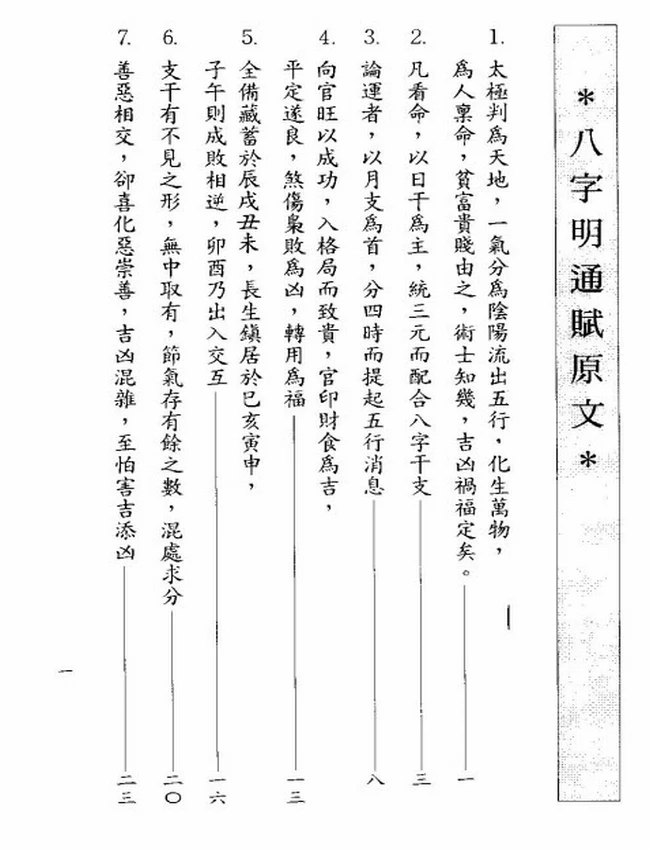 ＊八字明通賦原文＊
1. 太極判為天地，一氣分為陰陽流出五行，化生萬物，
為人稟命，貧富貴賤由之，術士知幾，吉凶禍福定矣。——一
2. 凡看命，以日干為主，統三元而配合八字干支——三
3. 論運者，以月支為首，分四時而提起五行消息——八
4. 向官旺以成功，入格局而致貴，官印財食為吉，
平定遂良，煞傷梟敗為凶，轉用為福——一三
5. 全備藏蓄於辰戌丑未，長生鎮居於巳亥寅申，
子午則成敗相逆，卯酉乃出入交互——一六
6. 支干有不見之形，無中取有，節氣存有餘之數，混處求分——二〇
7. 善惡相交，卻喜化惡崇善，吉凶混雜，至怕害吉添凶——二三
一